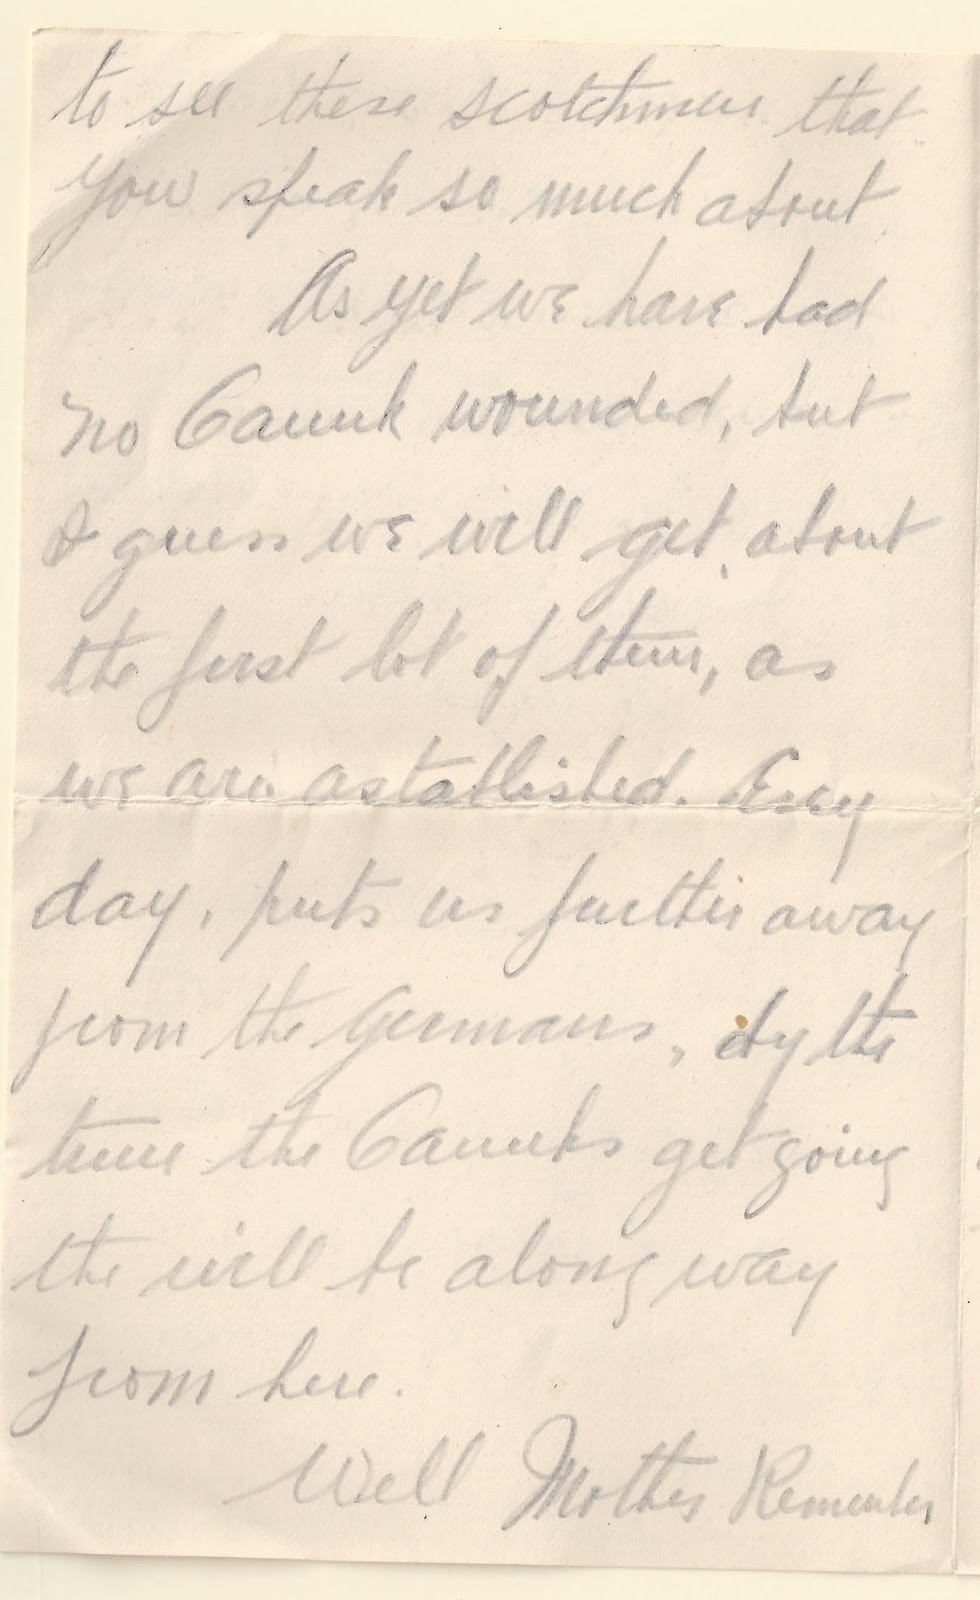 to see these scotchmen that
you speak so much about
As yet we have had
no Canuk wounded, but
I guess we will get, about
the first lot of them, as
we are astablished. Every
day, puts us further away
from the Germans, by the
time the Canuks get going
the will be along way
from here.
Well Mother Remember